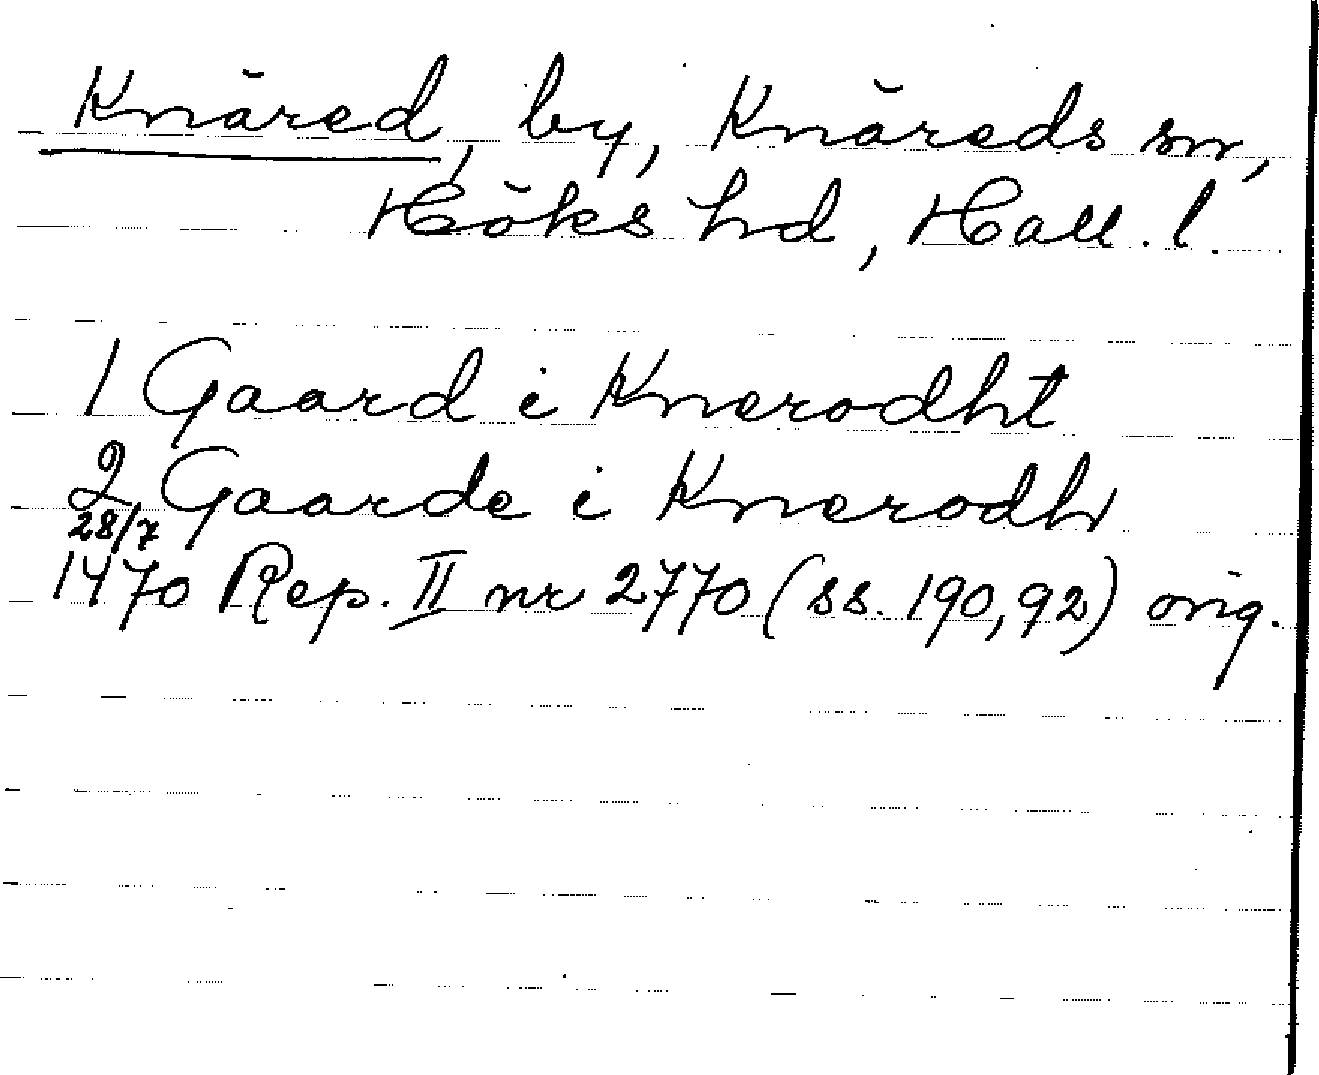 Knäred, by, Knäreds sn,
Höks hd, Hall. l.
1 Gaard i Knerodht
2 Gaarde i Knerodh
28/7
1470 Rep. II nr 2770 (ss. 190, 92) orig.